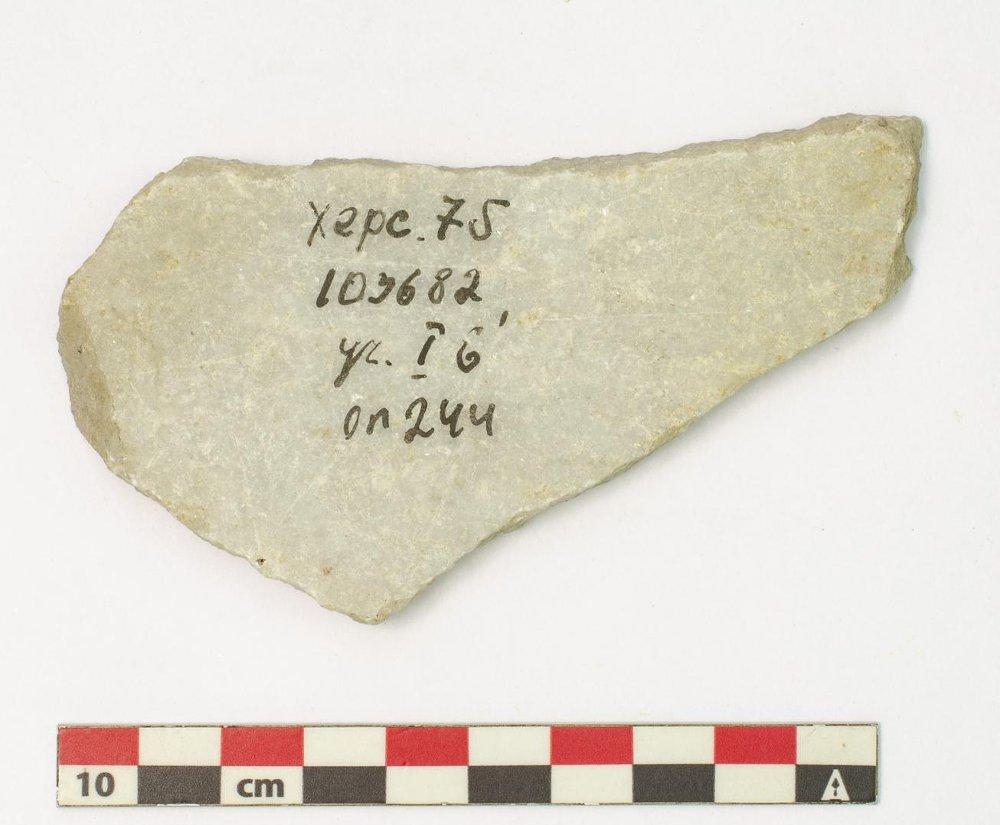 Херс. 75
103682
уг. I б'
оп 244
10 cm